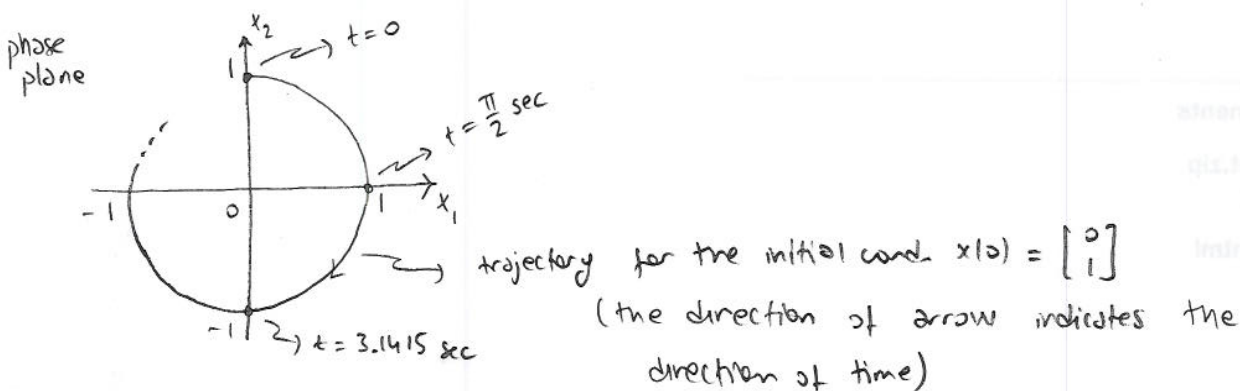 phase
plane
x₂
t=0
1
t = π/2 sec
-1
0
1
x₁
trajectory for the initial cond. x(0) = [0 1]
(the direction of arrow indicates the
direction of time)
-1
t = 3.1415 sec